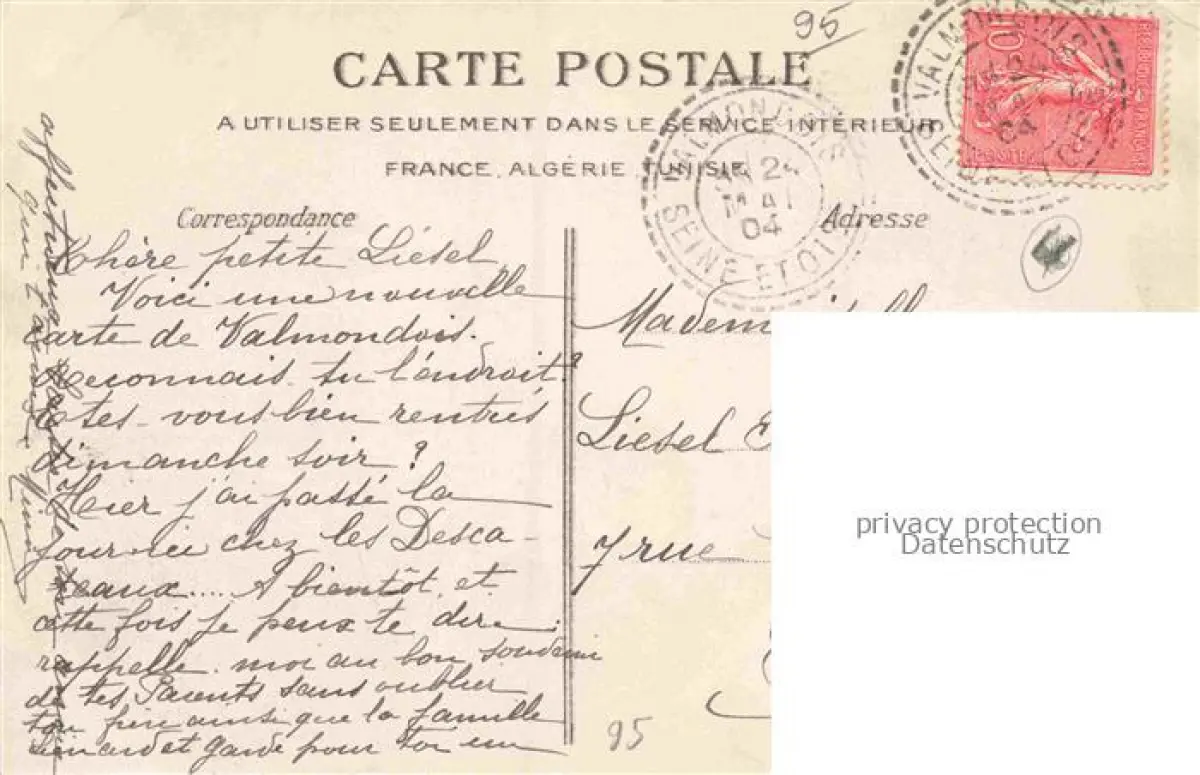 95
CARTE POSTALE
A UTILISER SEULEMENT DANS LE SERVICE INTÉRIEUR
FRANCE, ALGÉRIE, TUNISIE
VALMONDOIS
24
MAI
04
SEINE ET OISE
VALMONDOIS
04
10
POSTES
Correspondance
Chère petite Liesel
Voici une nouvelle
carte de Valmondois.
Reconnais-tu l'endroit?
Etes-vous bien rentrés
dimanche soir?
Hier j'ai passé la
journée chez les Desca-
teaux..... A bientôt, et
cette fois je peux te dire;
rappelle-moi au bon souvenir
de tes Parents sans oublier
ton père ainsi que la famille
et garde pour toi un
affectueux
que t'envoie
Adresse
Mademoiselle
Liesel
7 rue
95
privacy protection
Datenschutz